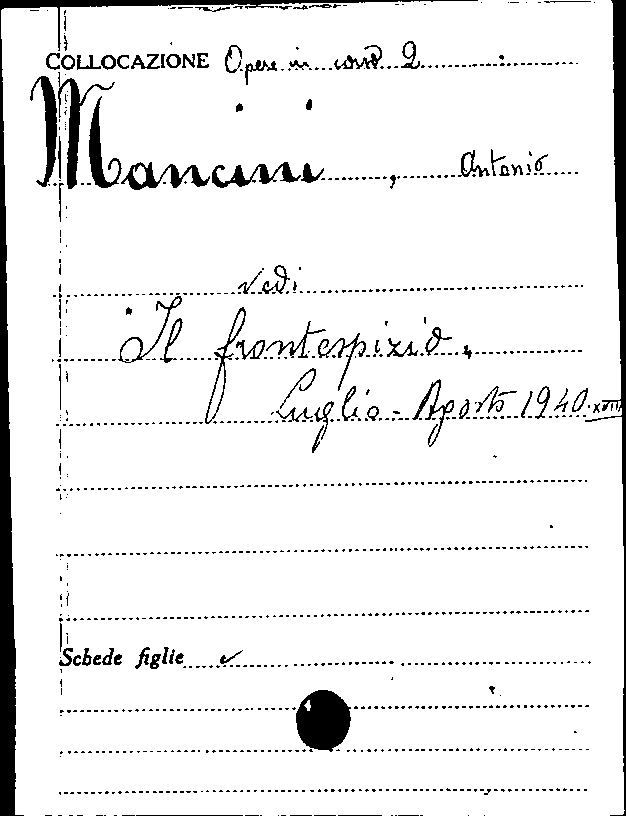 COLLOCAZIONE Opere in corso 2
Mancini, Antonio
vedi
Il frontespizio.
Luglio - Agosto 1940.XVIII
Schede figlie ✓